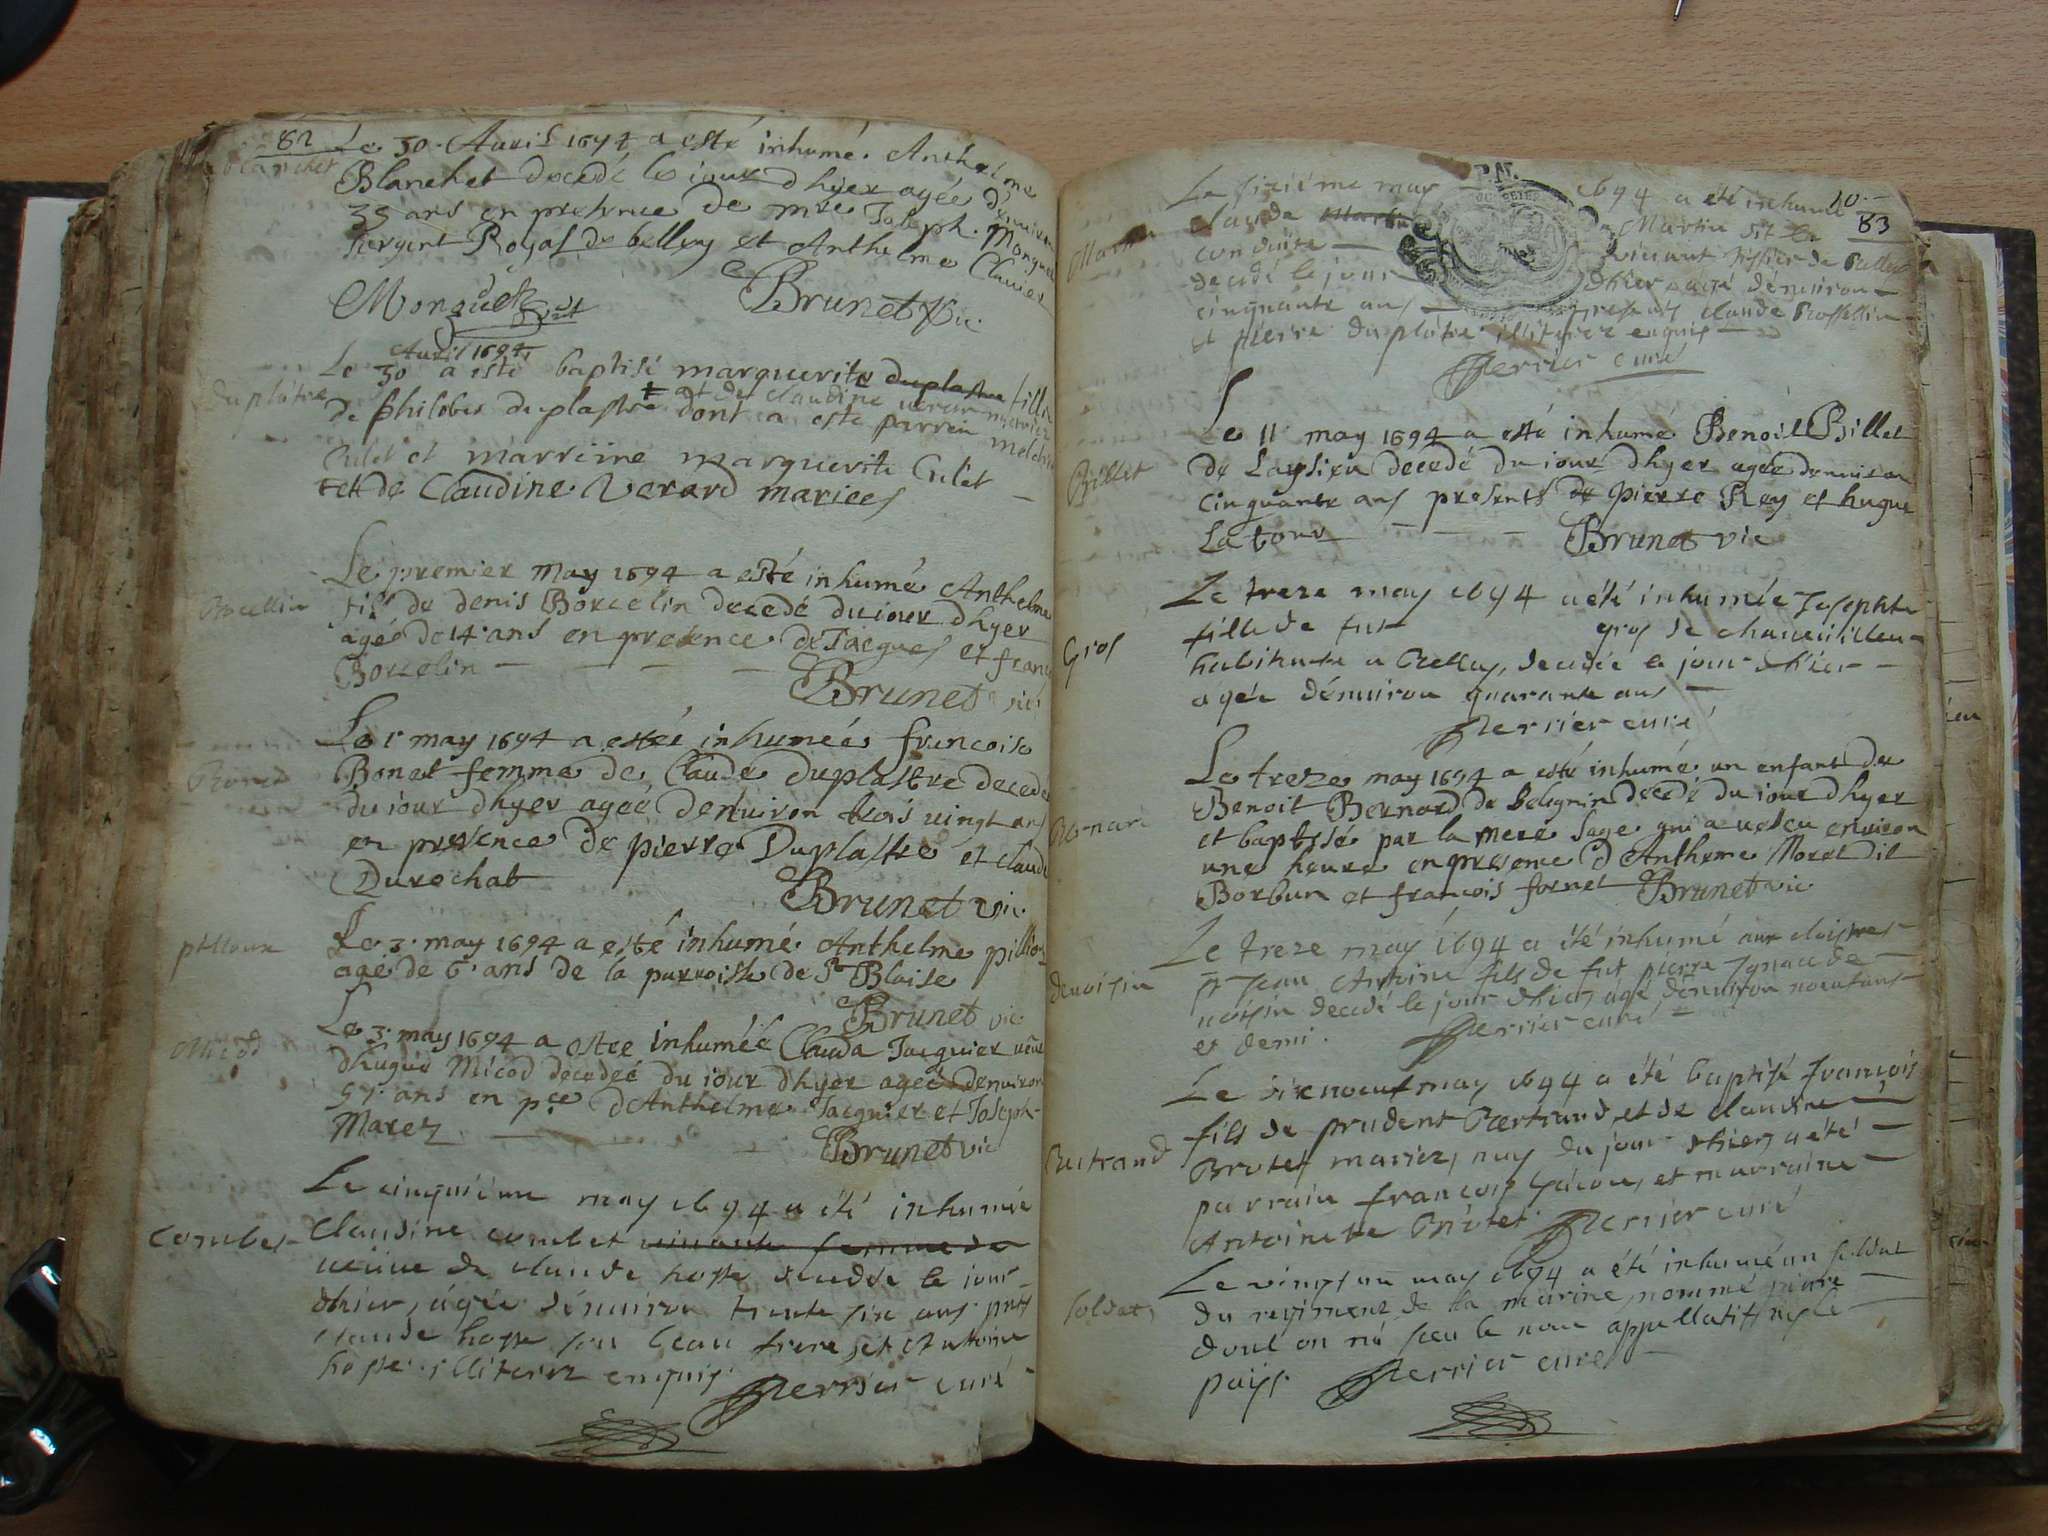 82
Blanchet
Le 30. Auril 1694 a esté inhumé. Anthelme
Blanchet decedé le iour dhyer agée denuiron
35 ans en presence de mre Joseph. Monguet
sergent Royal de belley et Anthelme Clauier
Monguet Brunet Vic.
Auril 1694
duplâtre
Le 30 a esté baptisé marguerite duplastre fille
et de claudine verar mariez
de philibes duplastre dont a este parrein melchior
Culet et marreine marguerite Culet
et de Claudine Verard mariees
Borcellin
Le premier May 1694 a esté inhumé Anthelme
fils de denis Borcelin decedé du iour dhyer
agée de 14. ans en presence de Jacques et franc
Borcelin
Brunet vic
Bonet
Le 1r may 1694 a estée inhumées francoise
Bonet femme de Claude duplastre decedée
du iour dhyer ageé denuiron trois uingt ans
en presence de pierre Duplastre et claude
Durochat
Brunet vic.
pilloux
Le 3. may 1694 a esté inhumé. Anthelme pilloux
agé de 6. ans de la parroisse de St Blaise
Brunet vic
Micod
Le 3. may 1694 a estee inhumeé Clauda Jacquier ueuue
dhugue Micod decedeé du iour dhyer ageé denuiron
57. ans en pce dAnthelme Jacquier et Joseph
Marez
Brunet vic
Combet
Le cinquiéme may 1694 a été inhumée
Claudine combet uiuante femme de
ueüue de claude hoste decedée le jour
dhier, agée dénuiron trente six ans pnts
claude hoste son beau frere, et Antoine
hoste illiterez enquis Perrier curé
10.
83
Martin
Le sixiéme may 1694 a été inhumé
claude Martin Martin dit la
conduite uiuant fissier de Belley
decedé le jour dhier agé dénuiron
cinquante ans presents claude Rossellin
et pierre duplâtre illiterez enquis
Perrier curé
Billet
Le 11 may 1694 a esté inhumé Benoist Billet
de Laysieu decedé du iour dhyer agée denuiron
cinquante ans presents de pierre Rey et hugue
Latour
Brunet vic
Gros
Le treze may 1694 a été inhumée Josephte
fille de fut gros de
habitante a Belley, decedée le jour dhier
agée dénuiron quarante ans
Perrier curé
Bernard
Le treze may 1694 a esté inhumé un enfant de
Benoit Bernard de belignin decedé du iour dhyer
et baptisé par la mere sage qui a uescu enuiron
une heure en presence dAnthelme Moret dit
Borbun et francois fornet Brunet vic
deuoisin
Le treze may 1694 a été inhumé aux cloistres
Sr Jean Antoine fils de fut pierre Ignace de
uoisin decedé le jour dhier, agé dénuiron neuf ans
et demi. Perrier curé
Bertrand
Le dixneuf may 1694 a été baptisé François
fils de prudent Bertrand, et de claudine
Brotet mariez, nay du jour dhier, a été
parrain François Gacon, et marraine
Antoinette Brotet Perrier curé
soldat
Le vingt un may 1694 a été inhumé un soldat
du regiment de la marine, nommé pierre
dont on n'a sceu le nom appellatif, ny le
païs. Perrier curé